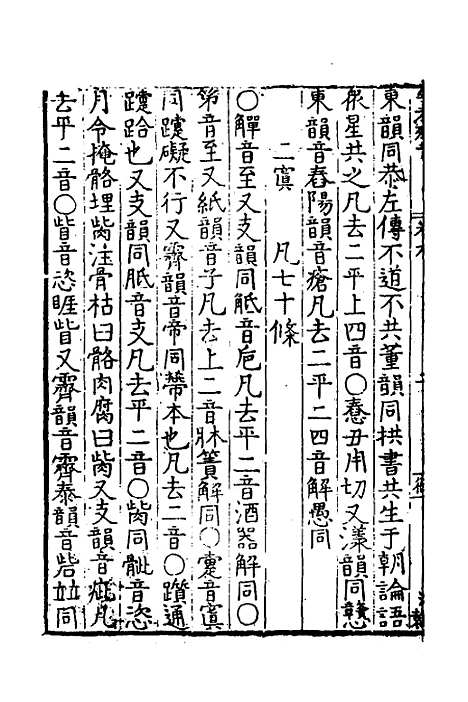 東韻同恭左傳不道不共董韻同拱書共生于朝論語
眾星共之凡去二平上四音〇憃丑用切又漾韻同戇
東韻音舂陽韻音瘡凡去二平二四音解愚同
二寘　凡七十條
〇觶音至又支韻同觝音巵凡去平二音酒器解同〇
笫音至又紙韻音子凡去上二音牀簀解同〇疐音寘
同躓礙不行又霽韻音帝同蔕本也凡去二音〇躓通
躓跲也又支韻同胝音支凡去平二音〇胔同骴音恣
月令掩骼埋胔注骨枯曰骼肉腐曰胔又支韻音疵凡
去平二音〇眥音恣睚眥又霽韻音霽泰韻音砦並同